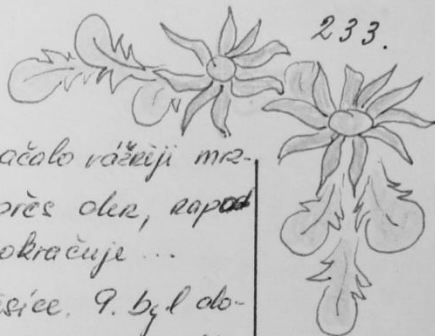 233.
ačalo vážněji mrz-
přes den, zapad
okračuje ...
síce. 9. byl do-